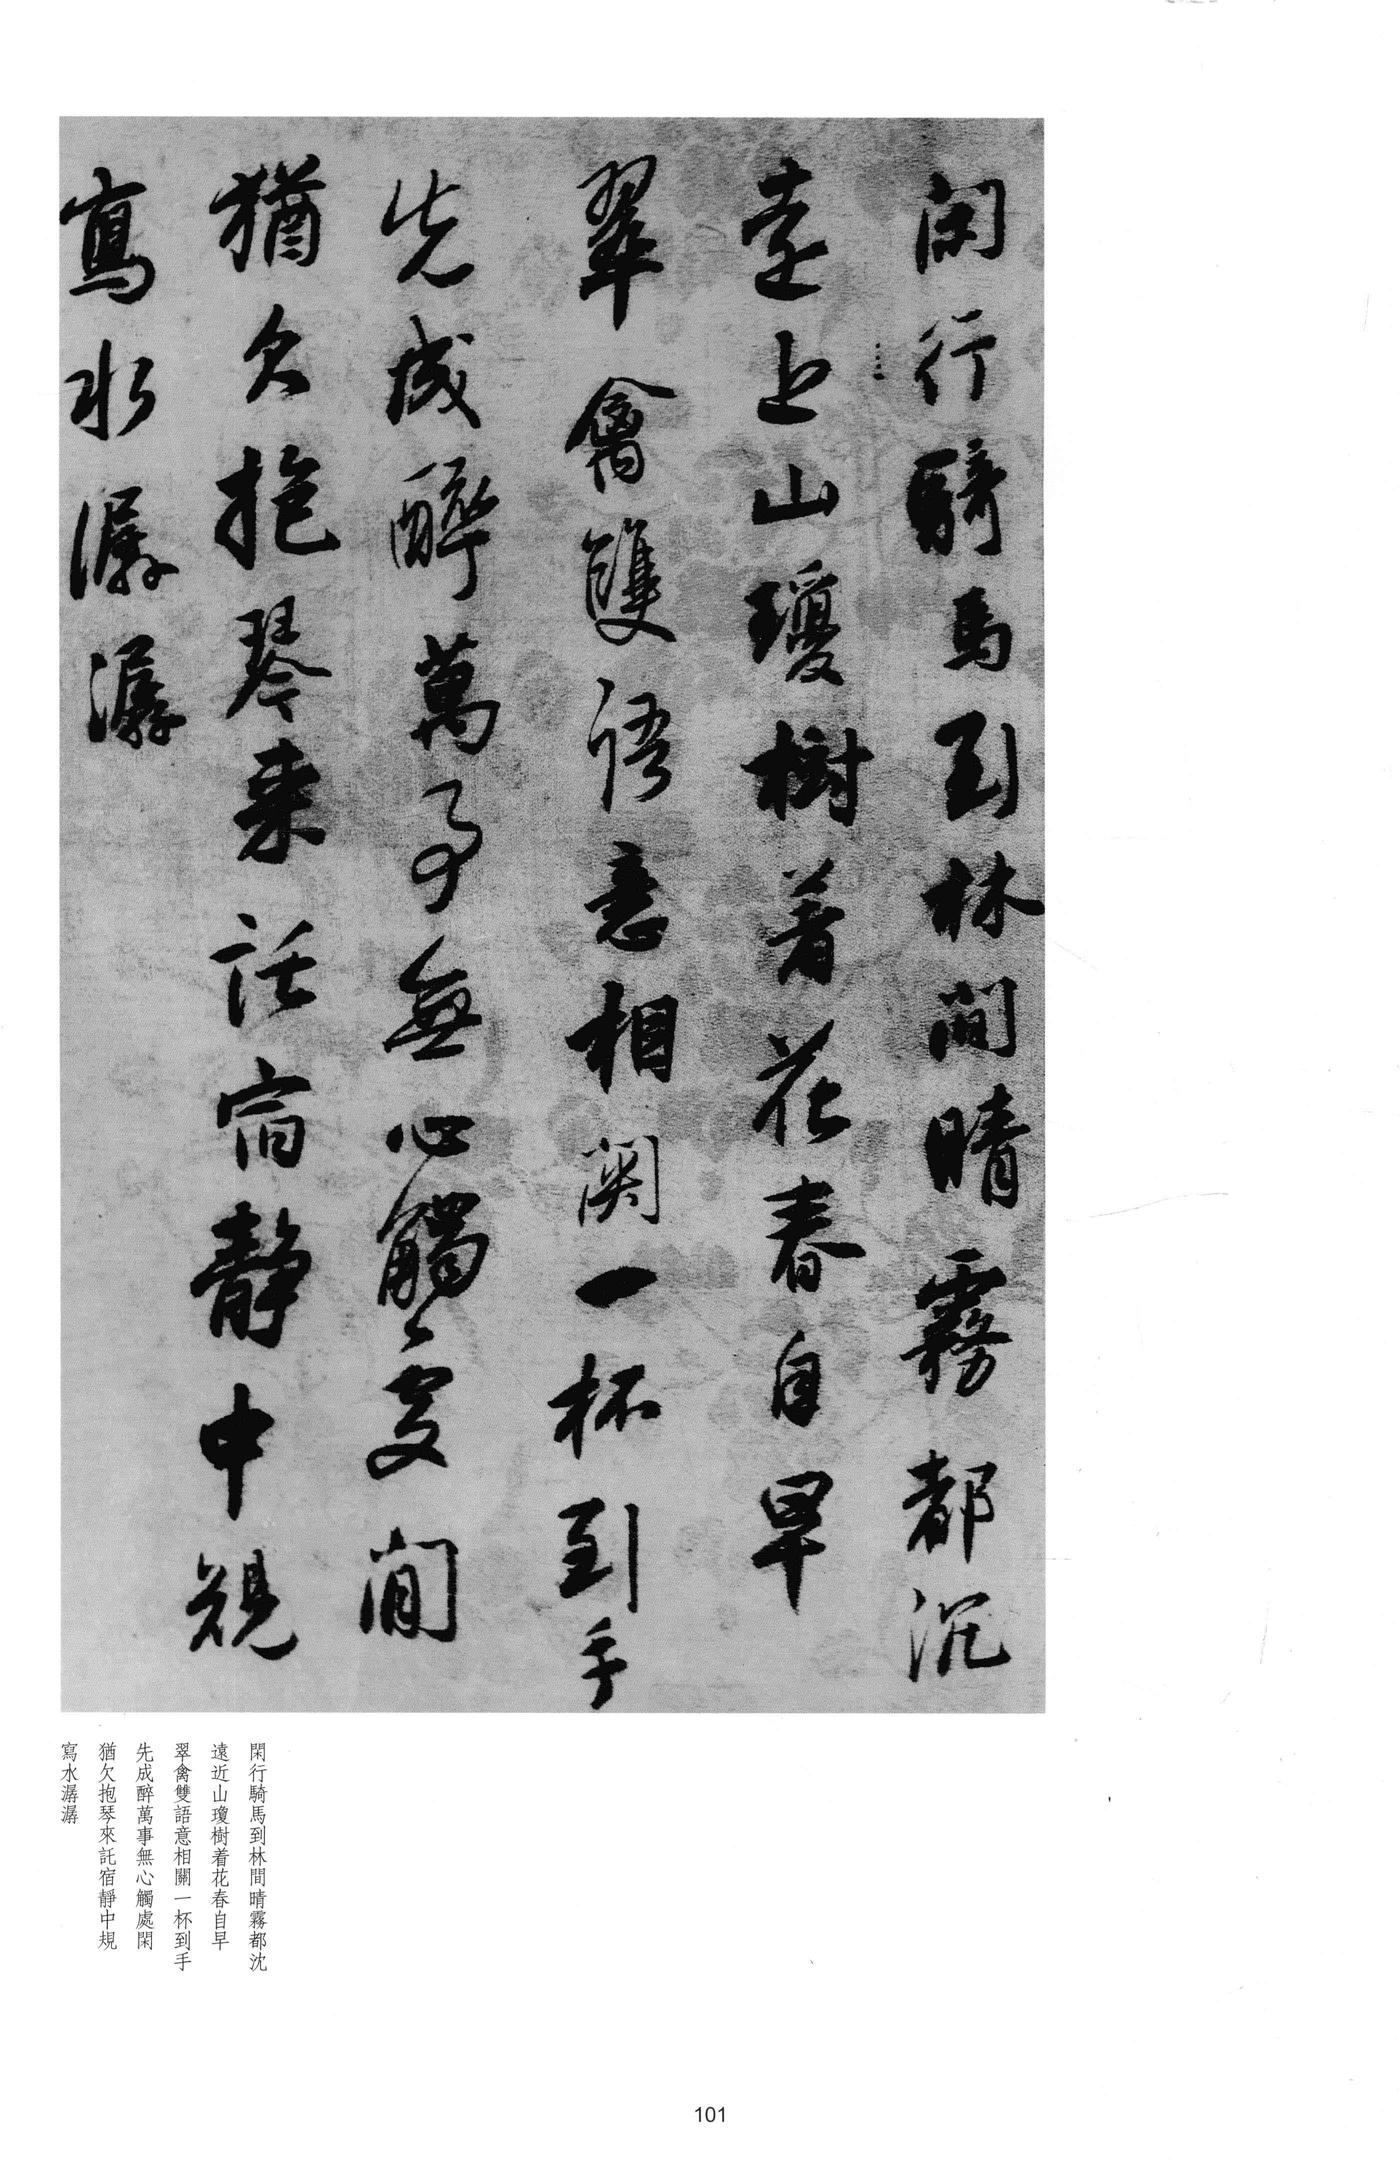 閑行騎馬到林間晴霧都沉
遠近山瓊樹着花春自早
翠禽雙語意相關一杯到手
先成醉萬事無心觸處閒
猶欠抱琴来託宿靜中規
寫水潺潺
閑行騎馬到林間晴霧都沈
遠近山瓊樹着花春自早
翠禽雙語意相關一杯到手
先成醉萬事無心觸處閑
猶欠抱琴來託宿靜中規
寫水潺潺
101